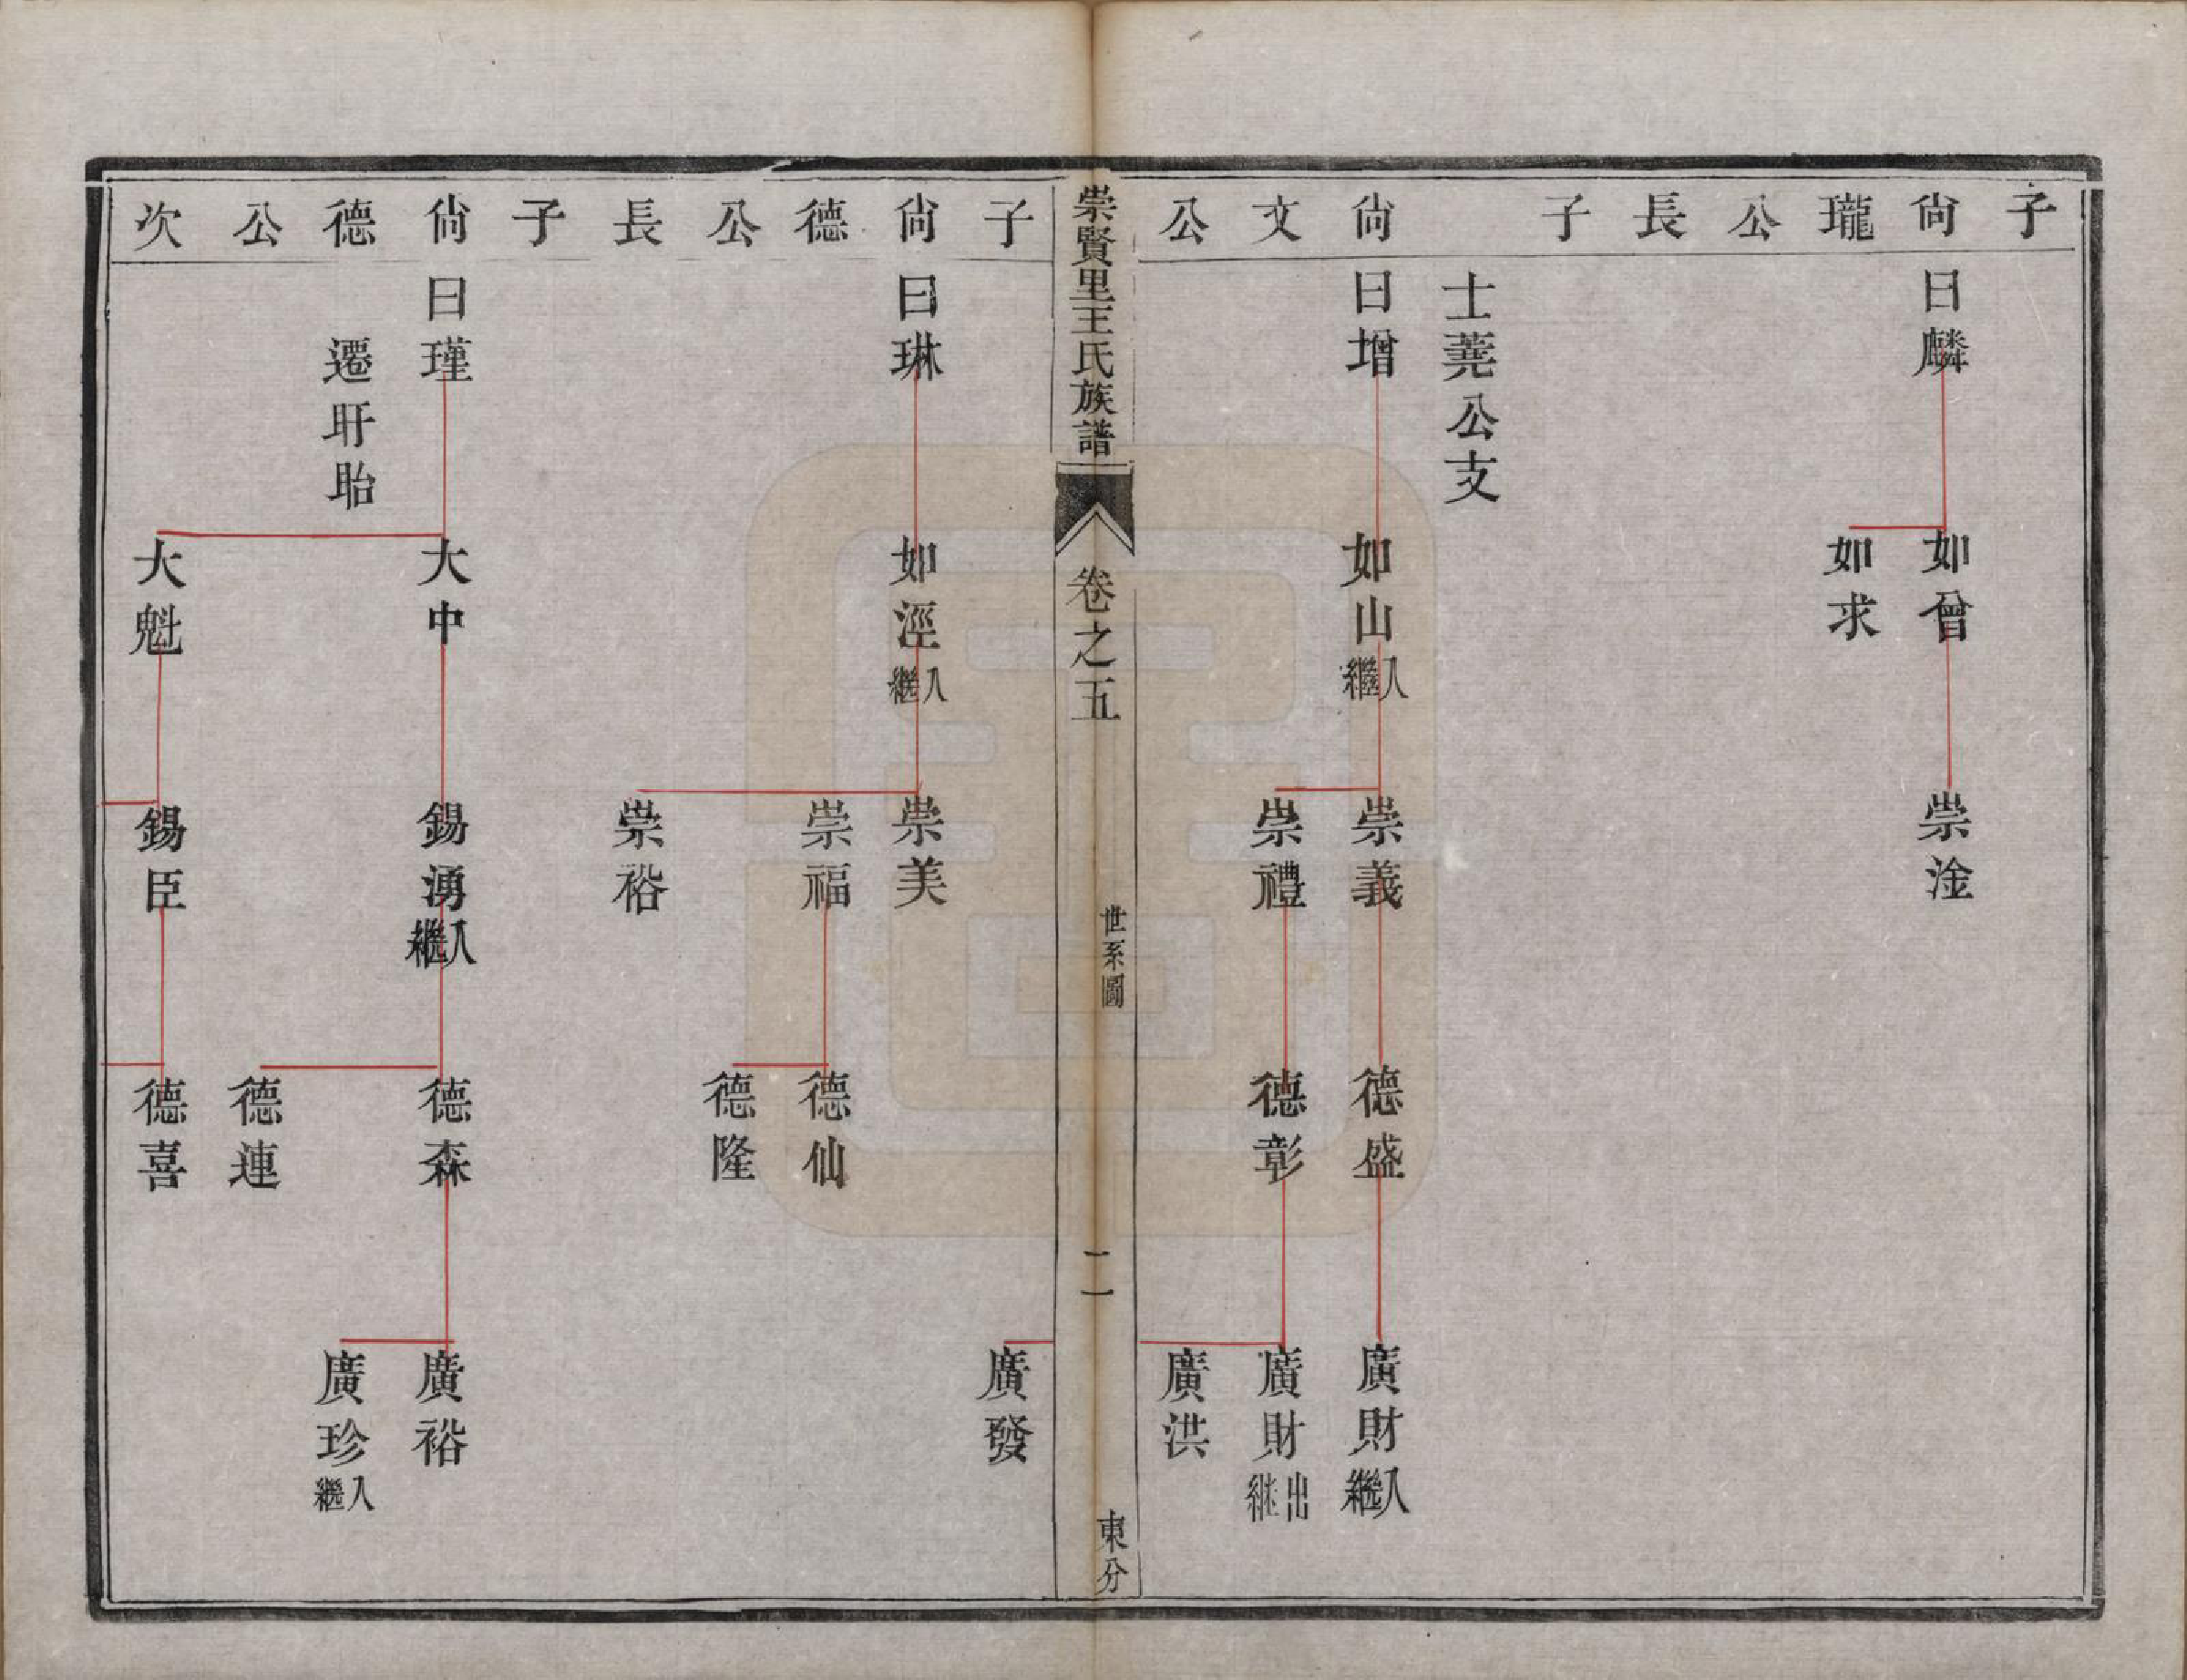 子尙瓏公長子　尙文公
曰麟
如曾
如求
崇淦
士蕘公支
曰增
如山入繼
崇義
崇禮
德盛
德彰
廣財入繼
廣財出继
廣洪
崇賢里王氏族譜
卷之五
世系圖
二
東分
子尙德公長子尙德公次
廣發
曰琳
如涇入繼
崇美
崇福
崇裕
德仙
德隆
曰瑾
遷盱眙
大中
大魁
錫湧入繼
錫臣
德森
德連
德喜
廣裕
廣珍入繼